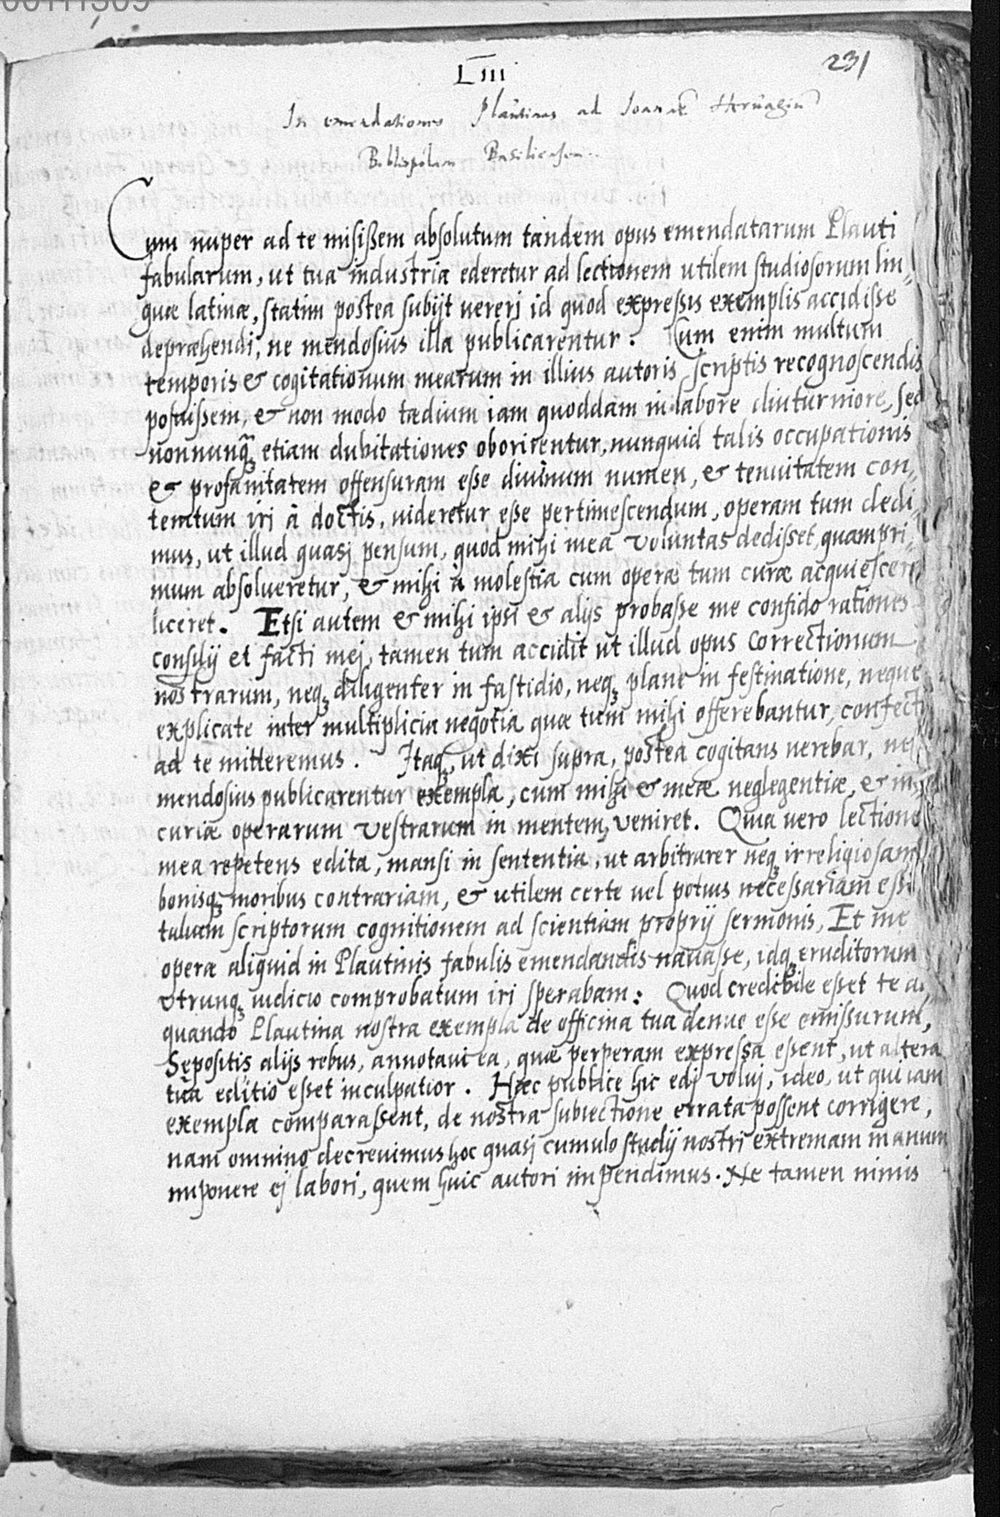 00111309
231
LIII
In emendationes Plautinas ad Ioannẽ Heruagiũ
Bibliopolam Basiliensem
Cum nuper ad te misissem absolutum tandem opus emendatarum Plauti
fabularum, ut tua industria ederetur ad lectionem utilem studiosorum lin-
guæ latinæ, statim postea subijt vereri id quod expressis exemplis accidisse
depræhendi, ne mendosius illa publicarentur. Cum enim multum
temporis & cogitationum mearum in illius autoris scriptis recognoscendis
posuissem, & non modo tædium iam quoddam in labore diuturniore, sed
nonnunq̃ etiam dubitationes oborirentur, nunquid talis occupationis
& profanitatem offensuram esse diuinum numen, & tenuitatem con-
temtum iri à doctis, uideretur esse pertimescendum, operam tum dedi-
mus, ut illud quasi pensum, quod mihi mea voluntas dedisset, quampri-
mum absolueretur, & mihi à molestia cum operæ tum curæ acquiescere
liceret. Etsi autem & mihi ipsi & alijs probasse me confido rationes
consilij et facti mei, tamen tum accidit ut illud opus correctionum
nostrarum, neq; diligenter in fastidio, neq; plane in festinatione, neque
explicate inter multiplicia negotia quæ tum mihi offerebantur, confecti
ad te mitteremus. Itaq;, ut dixi supra, postea cogitans verebar, ne
mendosius publicarentur exempla, cum mihi & meæ neglegentiæ, & in-
curiæ operarum vestrarum in mentem veniret. Quia vero lectione
mea repetens edita, mansi in sententia, ut arbitrarer neq; irreligiosam
bonisq; moribus contrariam, & utilem certe vel potius necessariam esse
talium scriptorum cognitionem ad scientiam proprij sermonis, Et me
operæ aliquid in Plautinis fabulis emendandis nauasse, idq; eruditorum
vtrunq; iudicio comprobatum iri sperabam: Quod credibile esset te ali
quando Plautina nostra exempla de officina tua denuo esse emissurum,
Sepositis alijs rebus, annotaui ea, quæ perperam expressa essent, ut altera
tua editio esset inculpatior. Hæc publice hic edi volui, ideo, ut qui iam
exempla comparassent, de nostra subiectione errata possent corrigere,
nam omnino decreuimus hoc quasi cumulo studij nostri extremam manum
imponere ei labori, quem huic autori impendimus. Ne tamen nimis